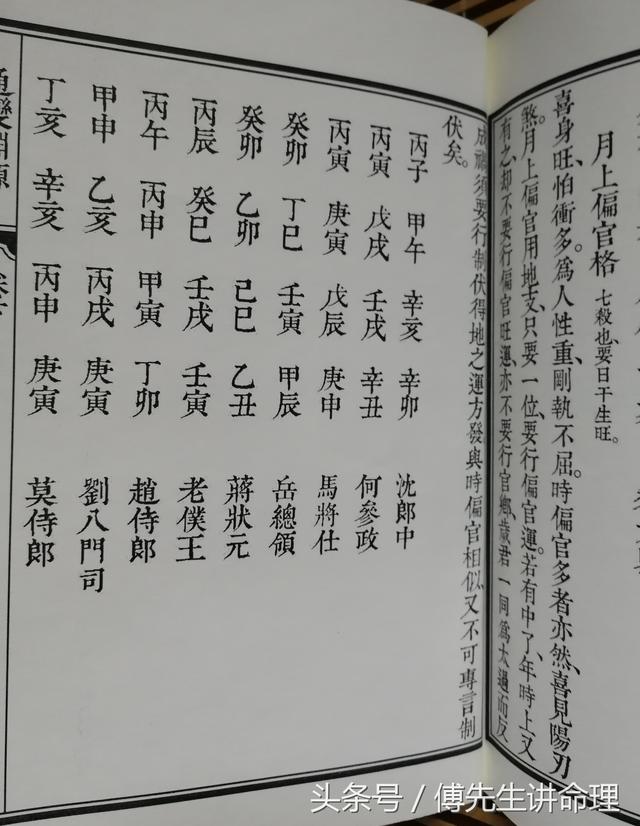 月上偏官格 七殺也、要日干生旺。
喜身旺、怕衝多。為人性重、剛執不屈。時偏官多者亦然、喜見陽刃
煞。月上偏官用地支、只要一位、要行偏官運。若有中了、年時上又
有之、却不要行偏官旺運、亦不要行官鄉、歲君一同為太過而反
成禍、須要行制伏得地之運方發、與時偏官相似、又不可專言制
伏矣。
丙子 甲午 辛亥 辛卯 沈郎中
丙寅 戊戌 壬戌 辛丑 何參政
丙寅 庚寅 戊辰 庚申 馬將仕
癸卯 丁巳 壬寅 甲辰 岳總領
癸卯 乙卯 己巳 乙丑 蔣狀元
丙辰 癸巳 壬戌 壬寅 老僕王
丙午 丙申 甲寅 丁卯 趙侍郎
甲申 乙亥 丙戌 庚寅 劉八門司
丁亥 辛亥 丙申 庚寅 莫侍郎
通變淵源
头条号 / 傅先生讲命理